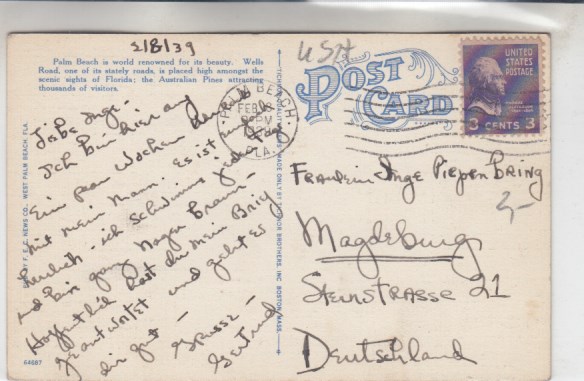 2/8/39
Palm Beach is world renowned for its beauty. Wells
Road, one of its stately roads, is placed high amongst the
scenic sights of Florida; the Australian Pines attracting
thousands of visitors.
USA
POST
CARD
UNITED
STATES
POSTAGE
3 CENTS 3
PALM BEACH
FEB
PM
FLA.
PUB. BY F. E. C. NEWS CO., WEST PALM BEACH, FLA.
BROTHERS, INC. BOSTON, MASS.
Liebe Inge.
Ich bin hier auf
Ein paar Wochen
mit mein Mann. Es ist
herrlich - ich schwimme jeden Tag.
und bin ganz braun -
Hoffentlich hast du mein Brief
geantwortet und geht es
dir gut -
Grüsse -
Gertrud
64687
Fraulein Inge Piepenbring
Magdeburg
Steinstrasse 21
Deutschland